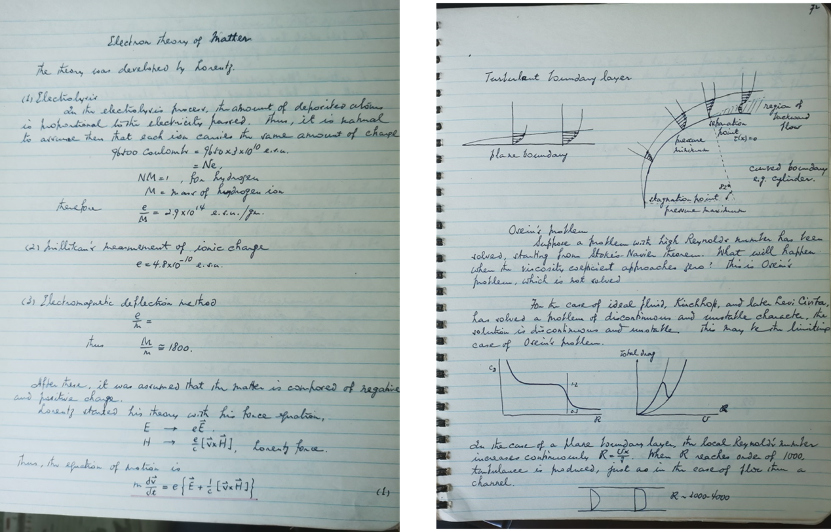 Electron theory of Matter
The theory was developed by Lorentz.
(1) Electrolysis
In the electrolysis process, the amount of deposited atoms
is proportional to the electricity passed. Thus, it is natural
to assume then that each ion carries the same amount of charge
96500 Coulomb = 9650 x 3 x 10^10 e.s.u.
= Ne,
NM = 1, for hydrogen
M = mass of hydrogen ion
therefore e/M = 2.9 x 10^14 e.s.u./gr.
(2) Millikan's measurement of ionic charge
e = 4.8 x 10^-10 e.s.u.
(3) Electromagnetic deflection method
e/m =
thus M/m ≅ 1800.
After these, it was assumed that the matter is composed of negative
and positive charge.
Lorentz started his theory with his force equation,
E → eE⃗.
H → e/c [v⃗ x H⃗], Lorentz force.
Thus, the equation of motion is
m dv⃗/dt = e {E⃗ + 1/c [v⃗ x H⃗]}
(1)
Turbulent boundary layer
plane boundary
separation
point
pressure
minimum
region of
backward
flow
curved boundary
e.g. cylinder.
stagnation point
pressure maximum
Oseen's problem
Suppose a problem with high Reynold's number has been
solved, starting from Stokes Navier theorem. What will happen
when the viscosity coefficient approaches zero? This is Oseen's
problem, which is not solved
For the case of ideal fluid, Kirchhoff, and late Levi Civita,
has solved a problem of discontinuous and unstable character. the
solution is discontinuous and unstable. This may be the limiting
case of Oseen's problem.
Total drag
R
U
In the case of a plane boundary layer, the local Reynold's number
increases continuously R = Ux/ν. When R reaches order of 1000,
turbulence is produced, just as in the case of flow thru a
channel.
R ~ 1000-4000